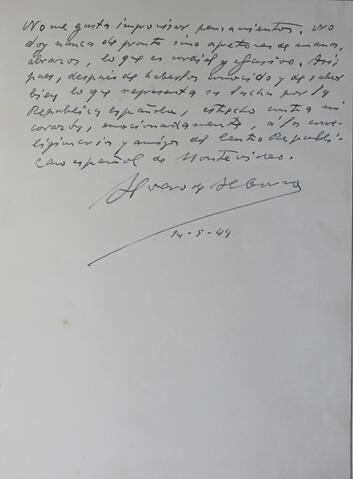 No me gusta improvisar pensamientos. No
doy nunca de pronto sino apretones de manos,
abrazos, lo que es cordial y efusivo. Así
pues, después de haberlos conocido y de saber
bien lo que representa su lucha por la
República española, estrecho contra mi
corazón, emocionadamente, a los corre-
ligionarios y amigos del Centro Republi-
cano español de Montevideo.
Alvaro de Albornoz
14-5-49.